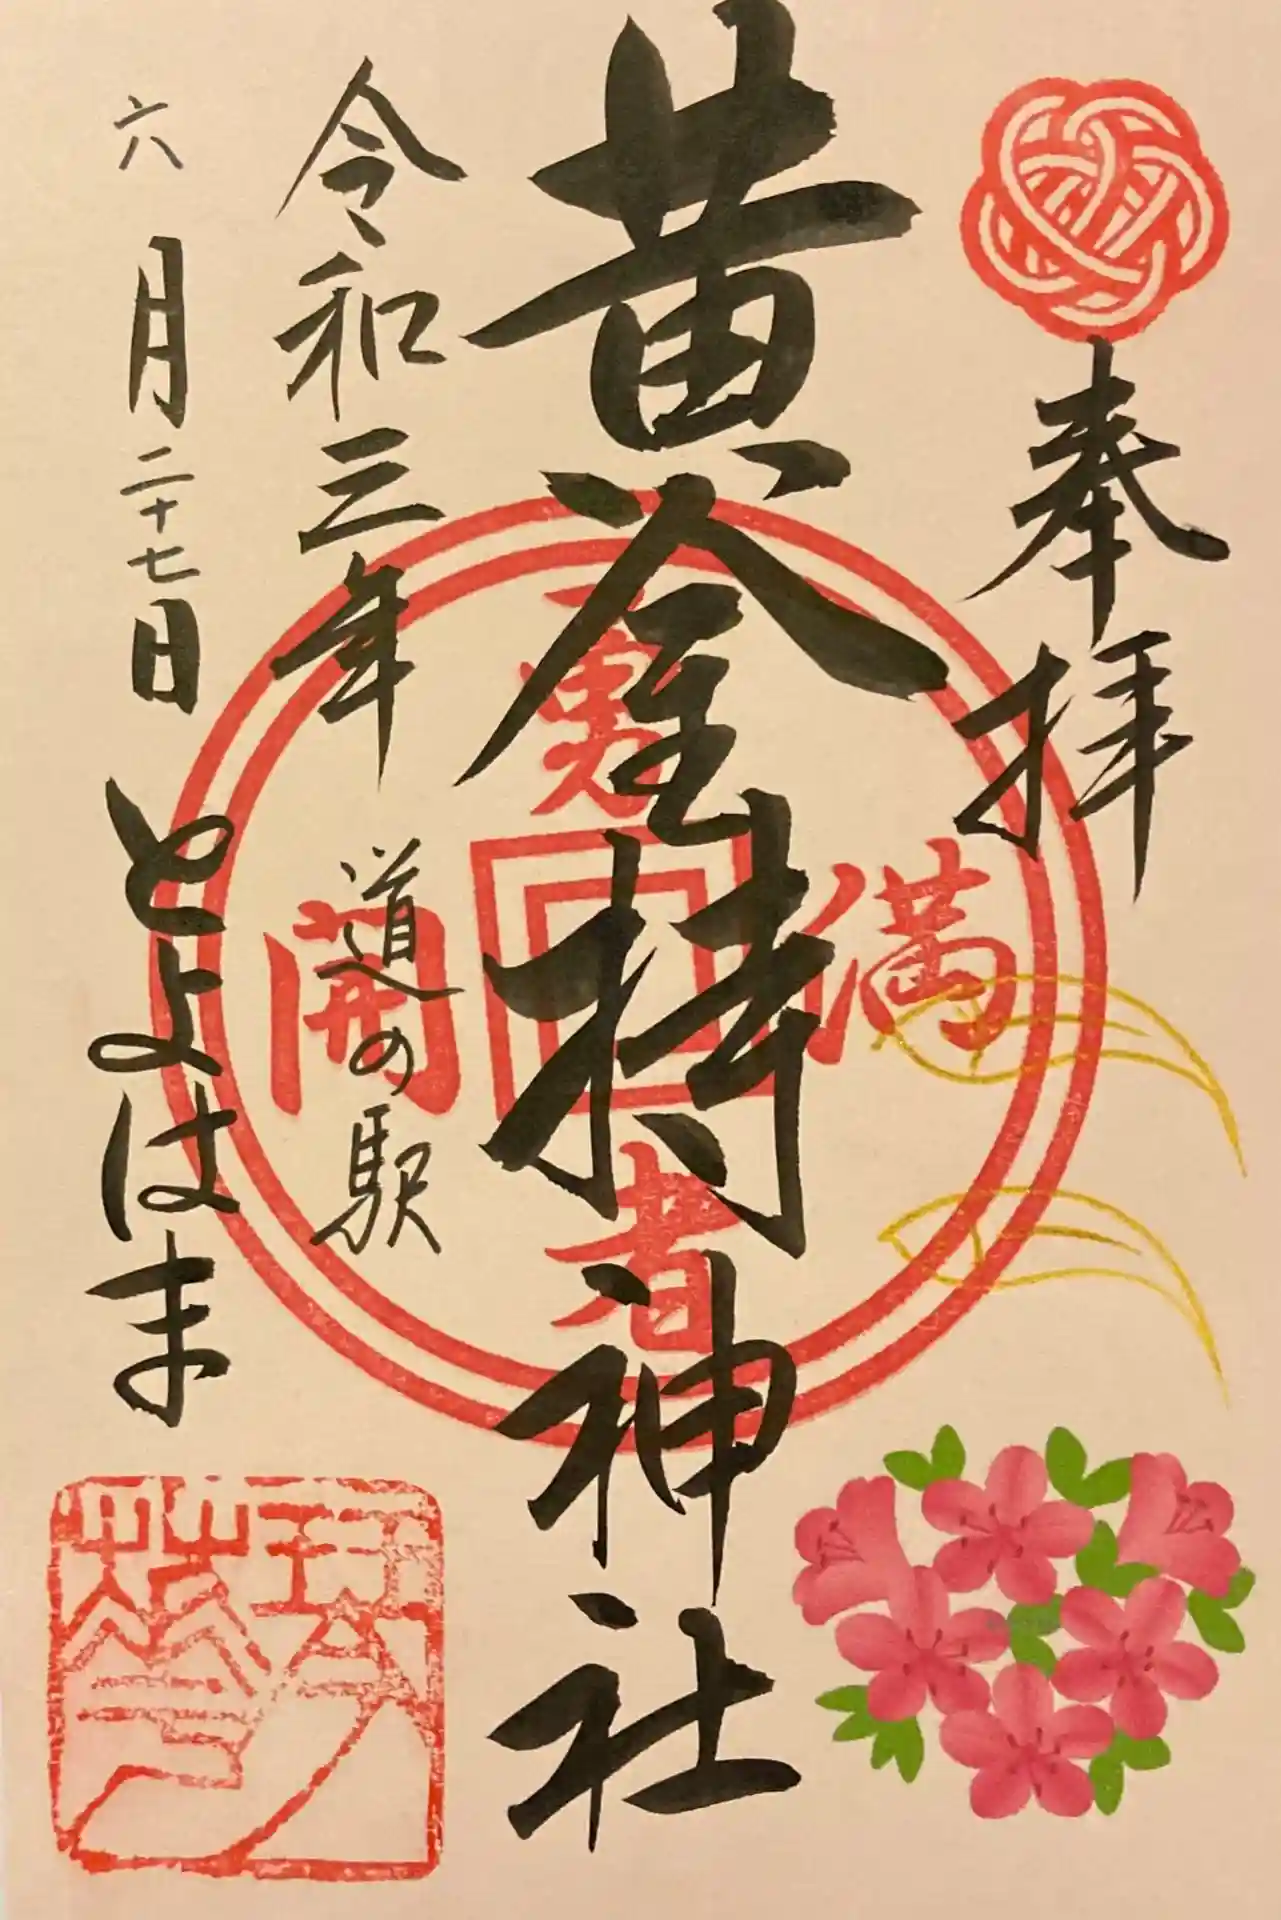 奉拝
黄金持神社
令和三年
道の駅
六月二十七日
とよはま
満
開
者